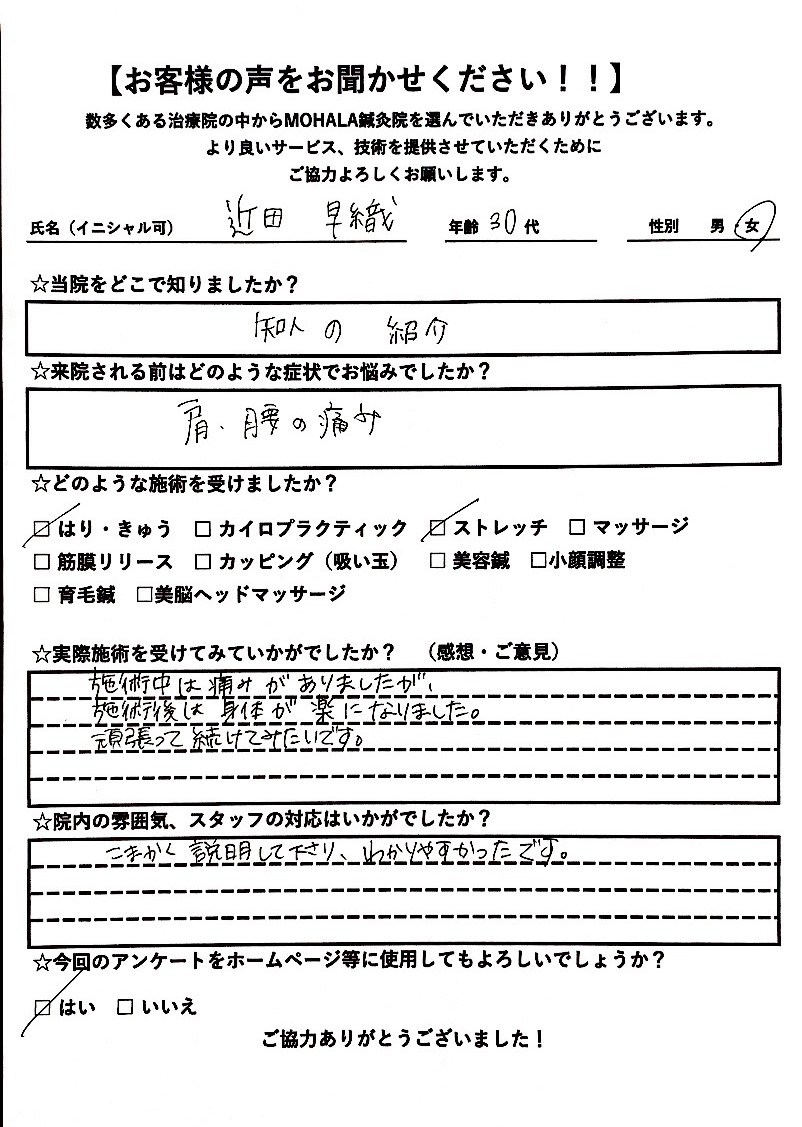 【お客様の声をお聞かせください！！】
数多くある治療院の中からMOHALA鍼灸院を選んでいただきありがとうございます。
より良いサービス、技術を提供させていただくために
ご協力よろしくお願いします。
氏名（イニシャル可） 近田 早織 年齢 30 代 性別 男・女
☆当院をどこで知りましたか？
知人の 紹介
☆来院される前はどのような症状でお悩みでしたか？
肩、腰の痛み
☆どのような施術を受けましたか？
☑ はり・きゅう □ カイロプラクティック ☑ ストレッチ □ マッサージ
□ 筋膜リリース □ カッピング（吸い玉） □ 美容鍼 □小顔調整
□ 育毛鍼 □美脳ヘッドマッサージ
☆実際施術を受けてみていかがでしたか？ （感想・ご意見）
施術中は痛みがありましたが、
施術後は身体が楽になりました。
頑張って続けてみたいです。
☆院内の雰囲気、スタッフの対応はいかがでしたか？
こまかく説明して下さり、わかりやすかったです。
☆今回のアンケートをホームページ等に使用してもよろしいでしょうか？
☑ はい □ いいえ
ご協力ありがとうございました！